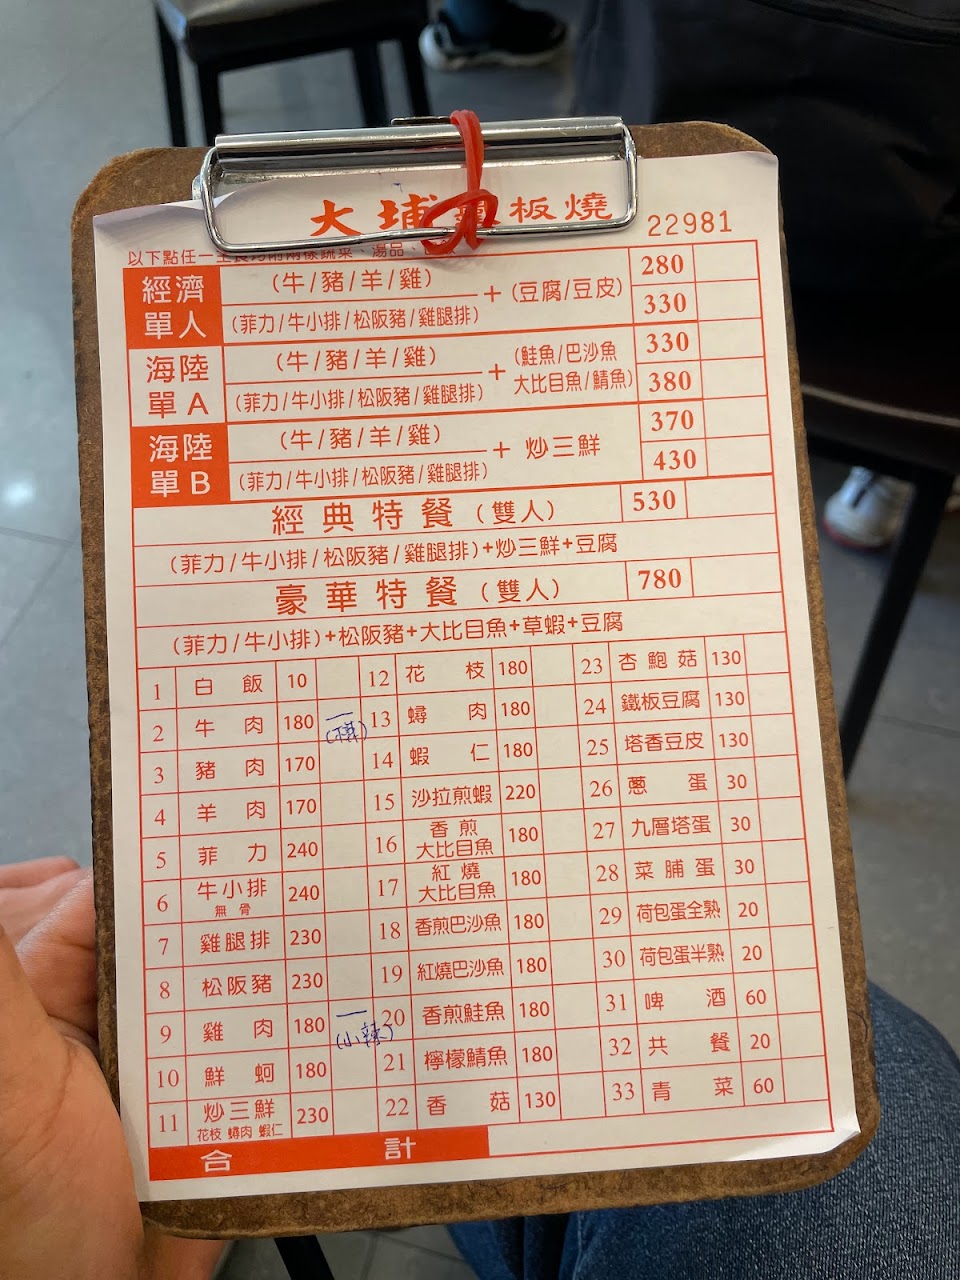 大埔鐵板燒
22981
以下點任一主食均附兩樣蔬菜、湯品、
經濟單人 (牛/豬/羊/雞) + (豆腐/豆皮) 280
(菲力/牛小排/松阪豬/雞腿排) 330
海陸單A (牛/豬/羊/雞) + (鮭魚/巴沙魚 大比目魚/鯖魚) 330
(菲力/牛小排/松阪豬/雞腿排) 380
海陸單B (牛/豬/羊/雞) + 炒三鮮 370
(菲力/牛小排/松阪豬/雞腿排) 430
經典特餐(雙人) 530
(菲力/牛小排/松阪豬/雞腿排)+炒三鮮+豆腐
豪華特餐(雙人) 780
(菲力/牛小排)+松阪豬+大比目魚+草蝦+豆腐
1 白飯 10
2 牛肉 180 一
3 豬肉 170
4 羊肉 170
5 菲力 240
6 牛小排 無骨 240
7 雞腿排 230
8 松阪豬 230
9 雞肉 180 一 (小辣)
10 鮮蚵 180
11 炒三鮮 花枝 蟳肉 蝦仁 230
12 花枝 180
13 蟳肉 180
14 蝦仁 180
15 沙拉煎蝦 220
16 香煎大比目魚 180
17 紅燒大比目魚 180
18 香煎巴沙魚 180
19 紅燒巴沙魚 180
20 香煎鮭魚 180
21 檸檬鯖魚 180
22 香菇 130
23 杏鮑菇 130
24 鐵板豆腐 130
25 塔香豆皮 130
26 蔥蛋 30
27 九層塔蛋 30
28 菜脯蛋 30
29 荷包蛋全熟 20
30 荷包蛋半熟 20
31 啤酒 60
32 共餐 20
33 青菜 60
合計